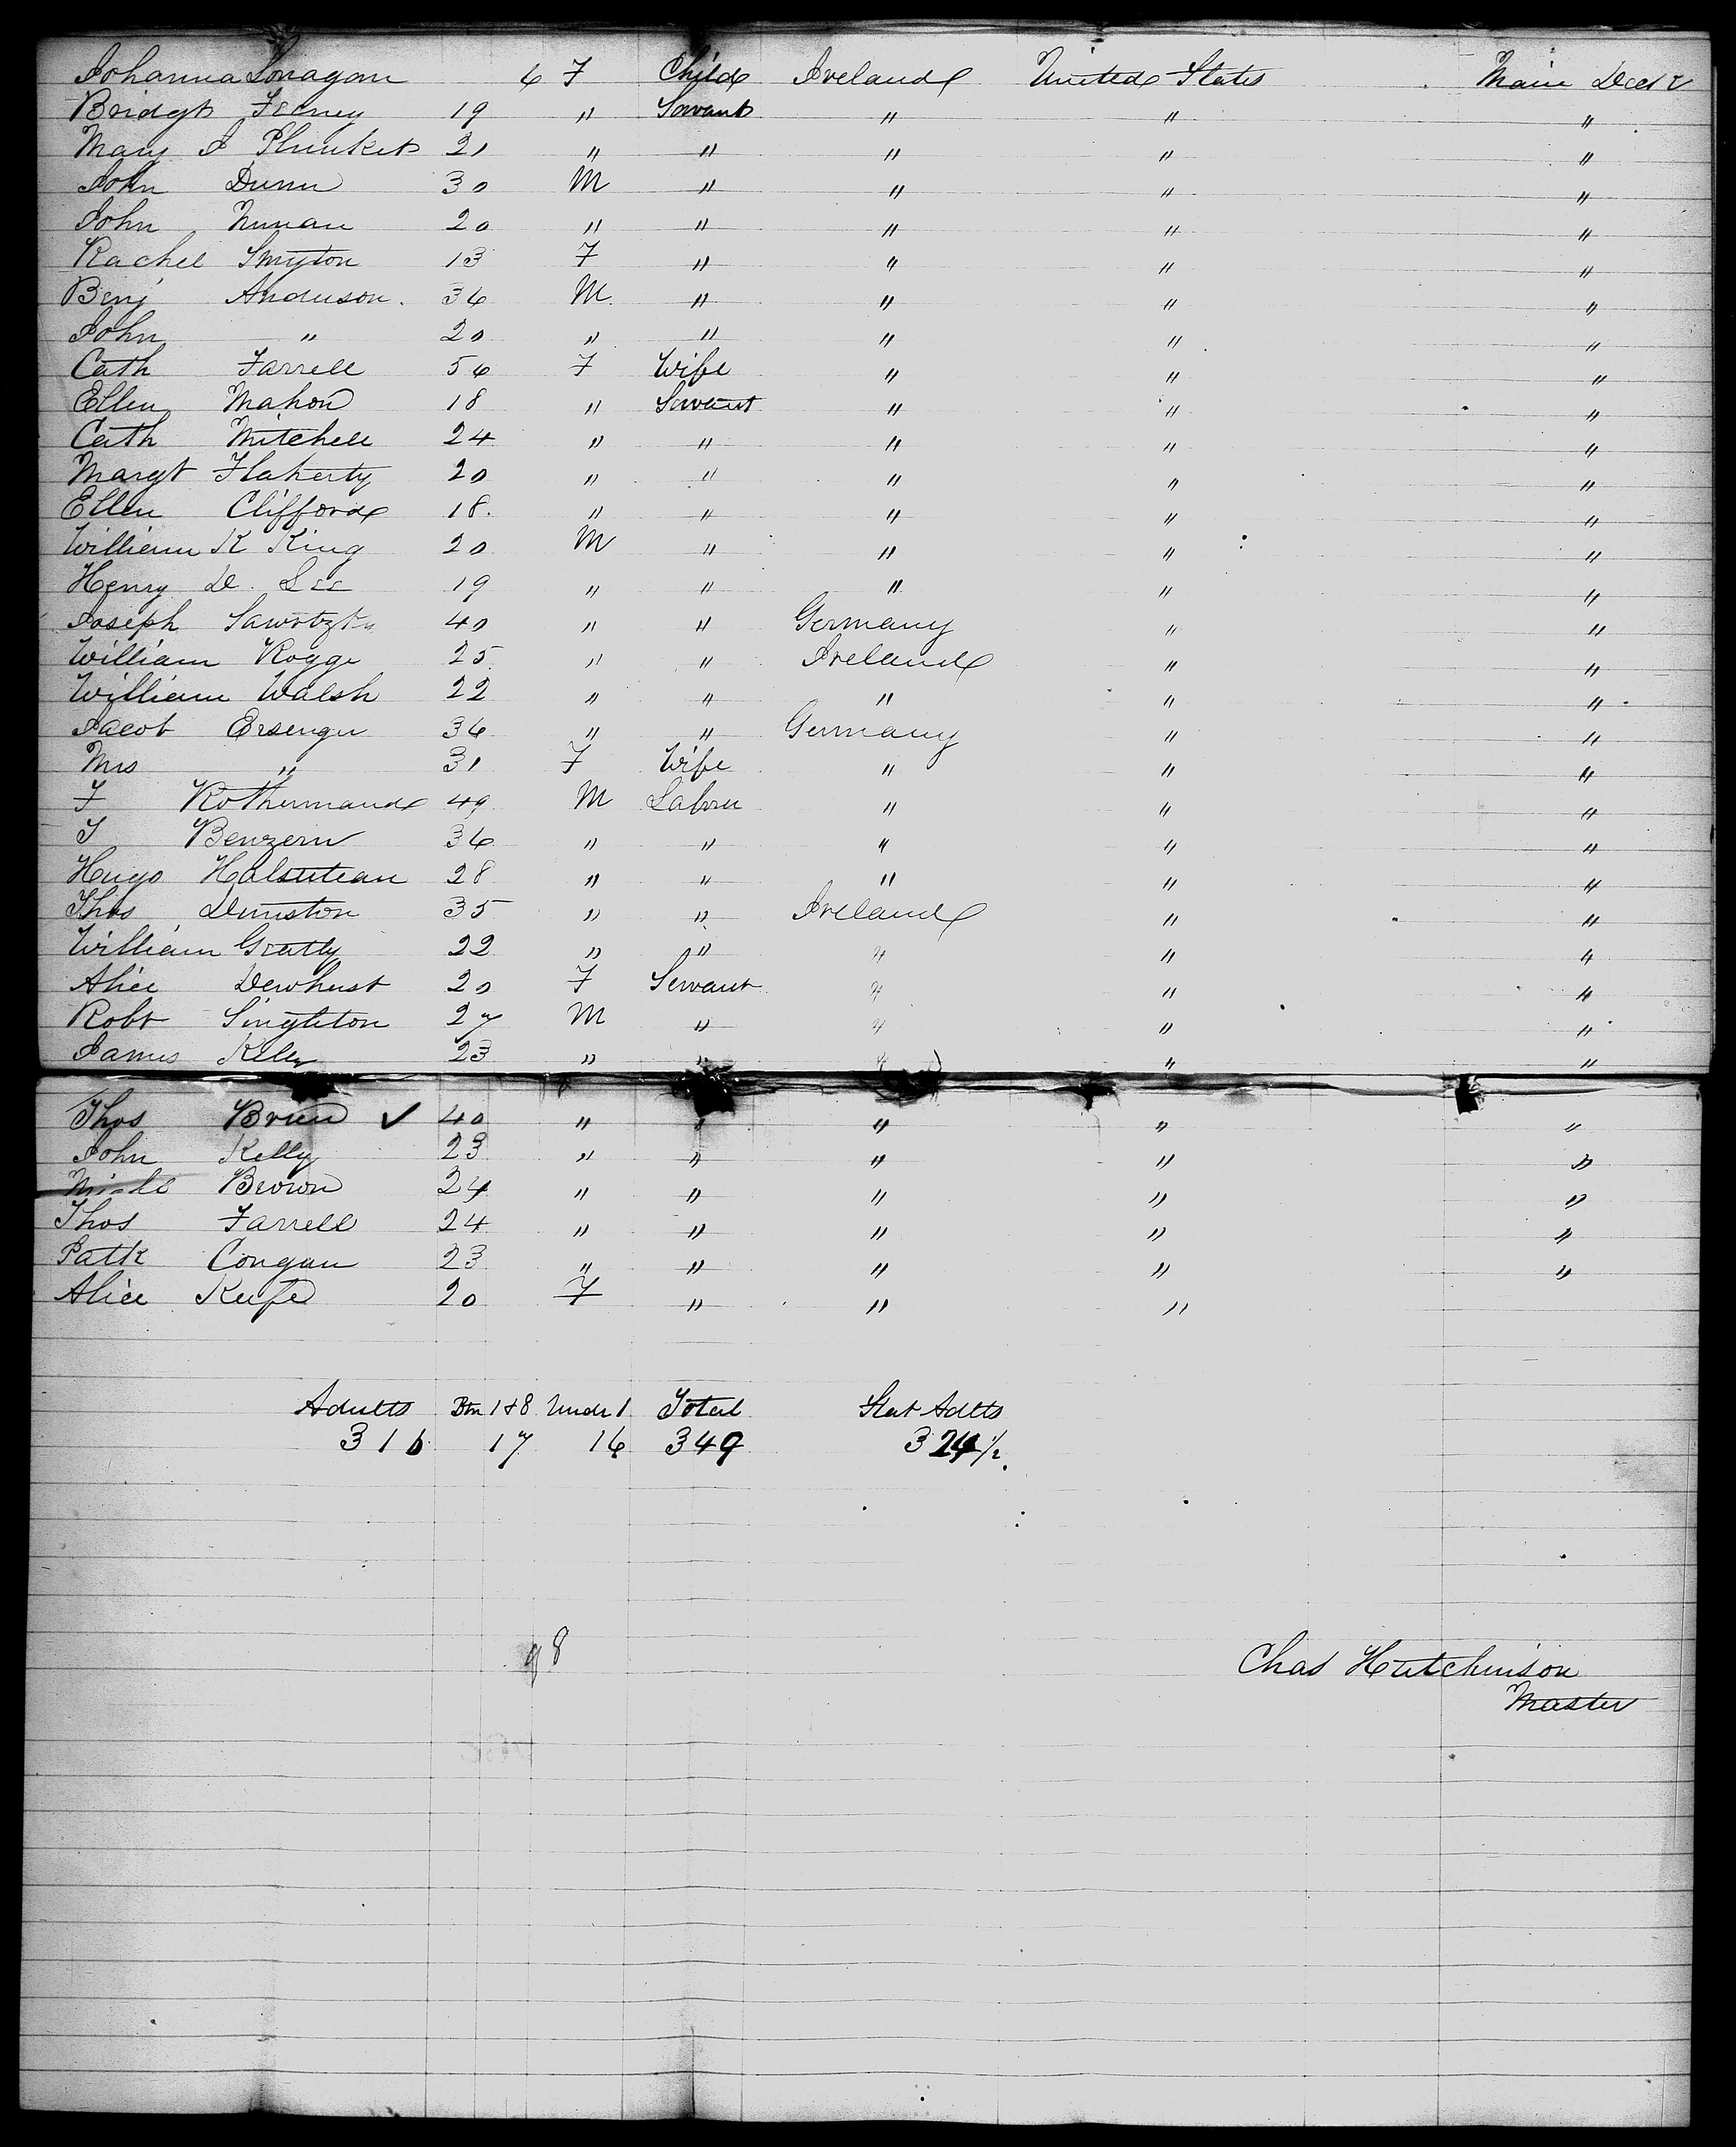 Johanna Lonagan 6 F Child Ireland United States Main Deck
Bridgt Feeney 19 " Servant " " "
Mary J Plunket 21 " " " " "
John Dunn 30 M " " " "
John Nunan 20 " " " " "
Rachel Smyton 13 F " " " "
Benj Anderson. 36 M. " " " "
John " 20 " " " " "
Cath Farrell 56 F Wife " " "
Ellen Mahon 18 " Servant " " "
Cath Mitchell 24 " " " " "
Margt Flaherty 20 " " " " "
Ellen Clifford 18. " " " " "
William K King 20 M " " " "
Henry D. Lee 19 " " " " "
Joseph 40 " " Germany " "
William Rogge 25 " " Ireland " "
William Walsh 22 " " " " "
Jacob Ersenger 36 " " Germany " "
Mrs " 31 F Wife " " "
F Rothermand 49 M Laborer " " "
J Benzern 36 " " " " "
Hugo 28 " " " " "
Thos Dunston 35 " " Ireland " "
William Gratty 22 " " " " "
Alice Dewhust 20 F Servant " " "
Robt Singleton 27 M " " " "
James Kiley 23 " " " " "
Thos Brien ✓ 40 " " " " "
John Kelly 23 " " " " "
Brown 24 " " " " "
Thos Farrell 24 " " " " "
Patk Congan 23 " " " " "
Alice Keefe 20 F " " "
Adults Btn 1 & 8 Under 1 Total Stat Adlts
316 17 16 349 324 1/2.
98
Chas Hutchinson
Master